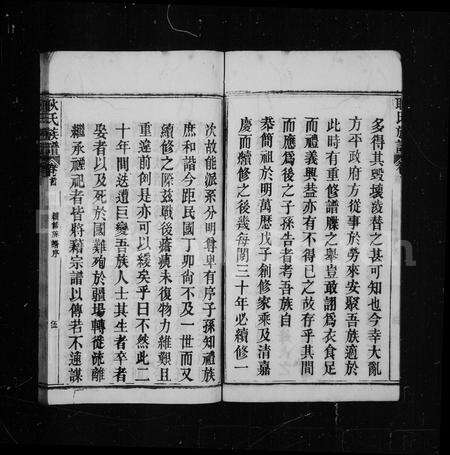 多得其毀壞凌替之甚可知也今幸大亂
方平政府方從事於勞來安聚吾族適於
此時有重修譜牒之舉豈敢謂爲衣食足
而禮義興蓋亦有不得已之故存乎其間
而應爲後之子孫告者考吾族自
恭簡祖於明萬歷戊子創修家乘及清嘉
慶而續修之後幾每閱三十年必續修一
次故能派系分明尊卑有序子孫知禮族
庶和諧今距民國丁卯尙不及一世而又
續修之際茲戰後蒼痍未復物力維艱且
重違前例是亦可以緩矣乎曰不然此二
十年間迭遭巨變吾族人士其生者卒者
娶者以及死於國難殉於疆場轉徙流離
繼承禋祀者皆將賴宗譜以傳若不遠謀
耿氏族譜
卷首
續修族譜序
伍